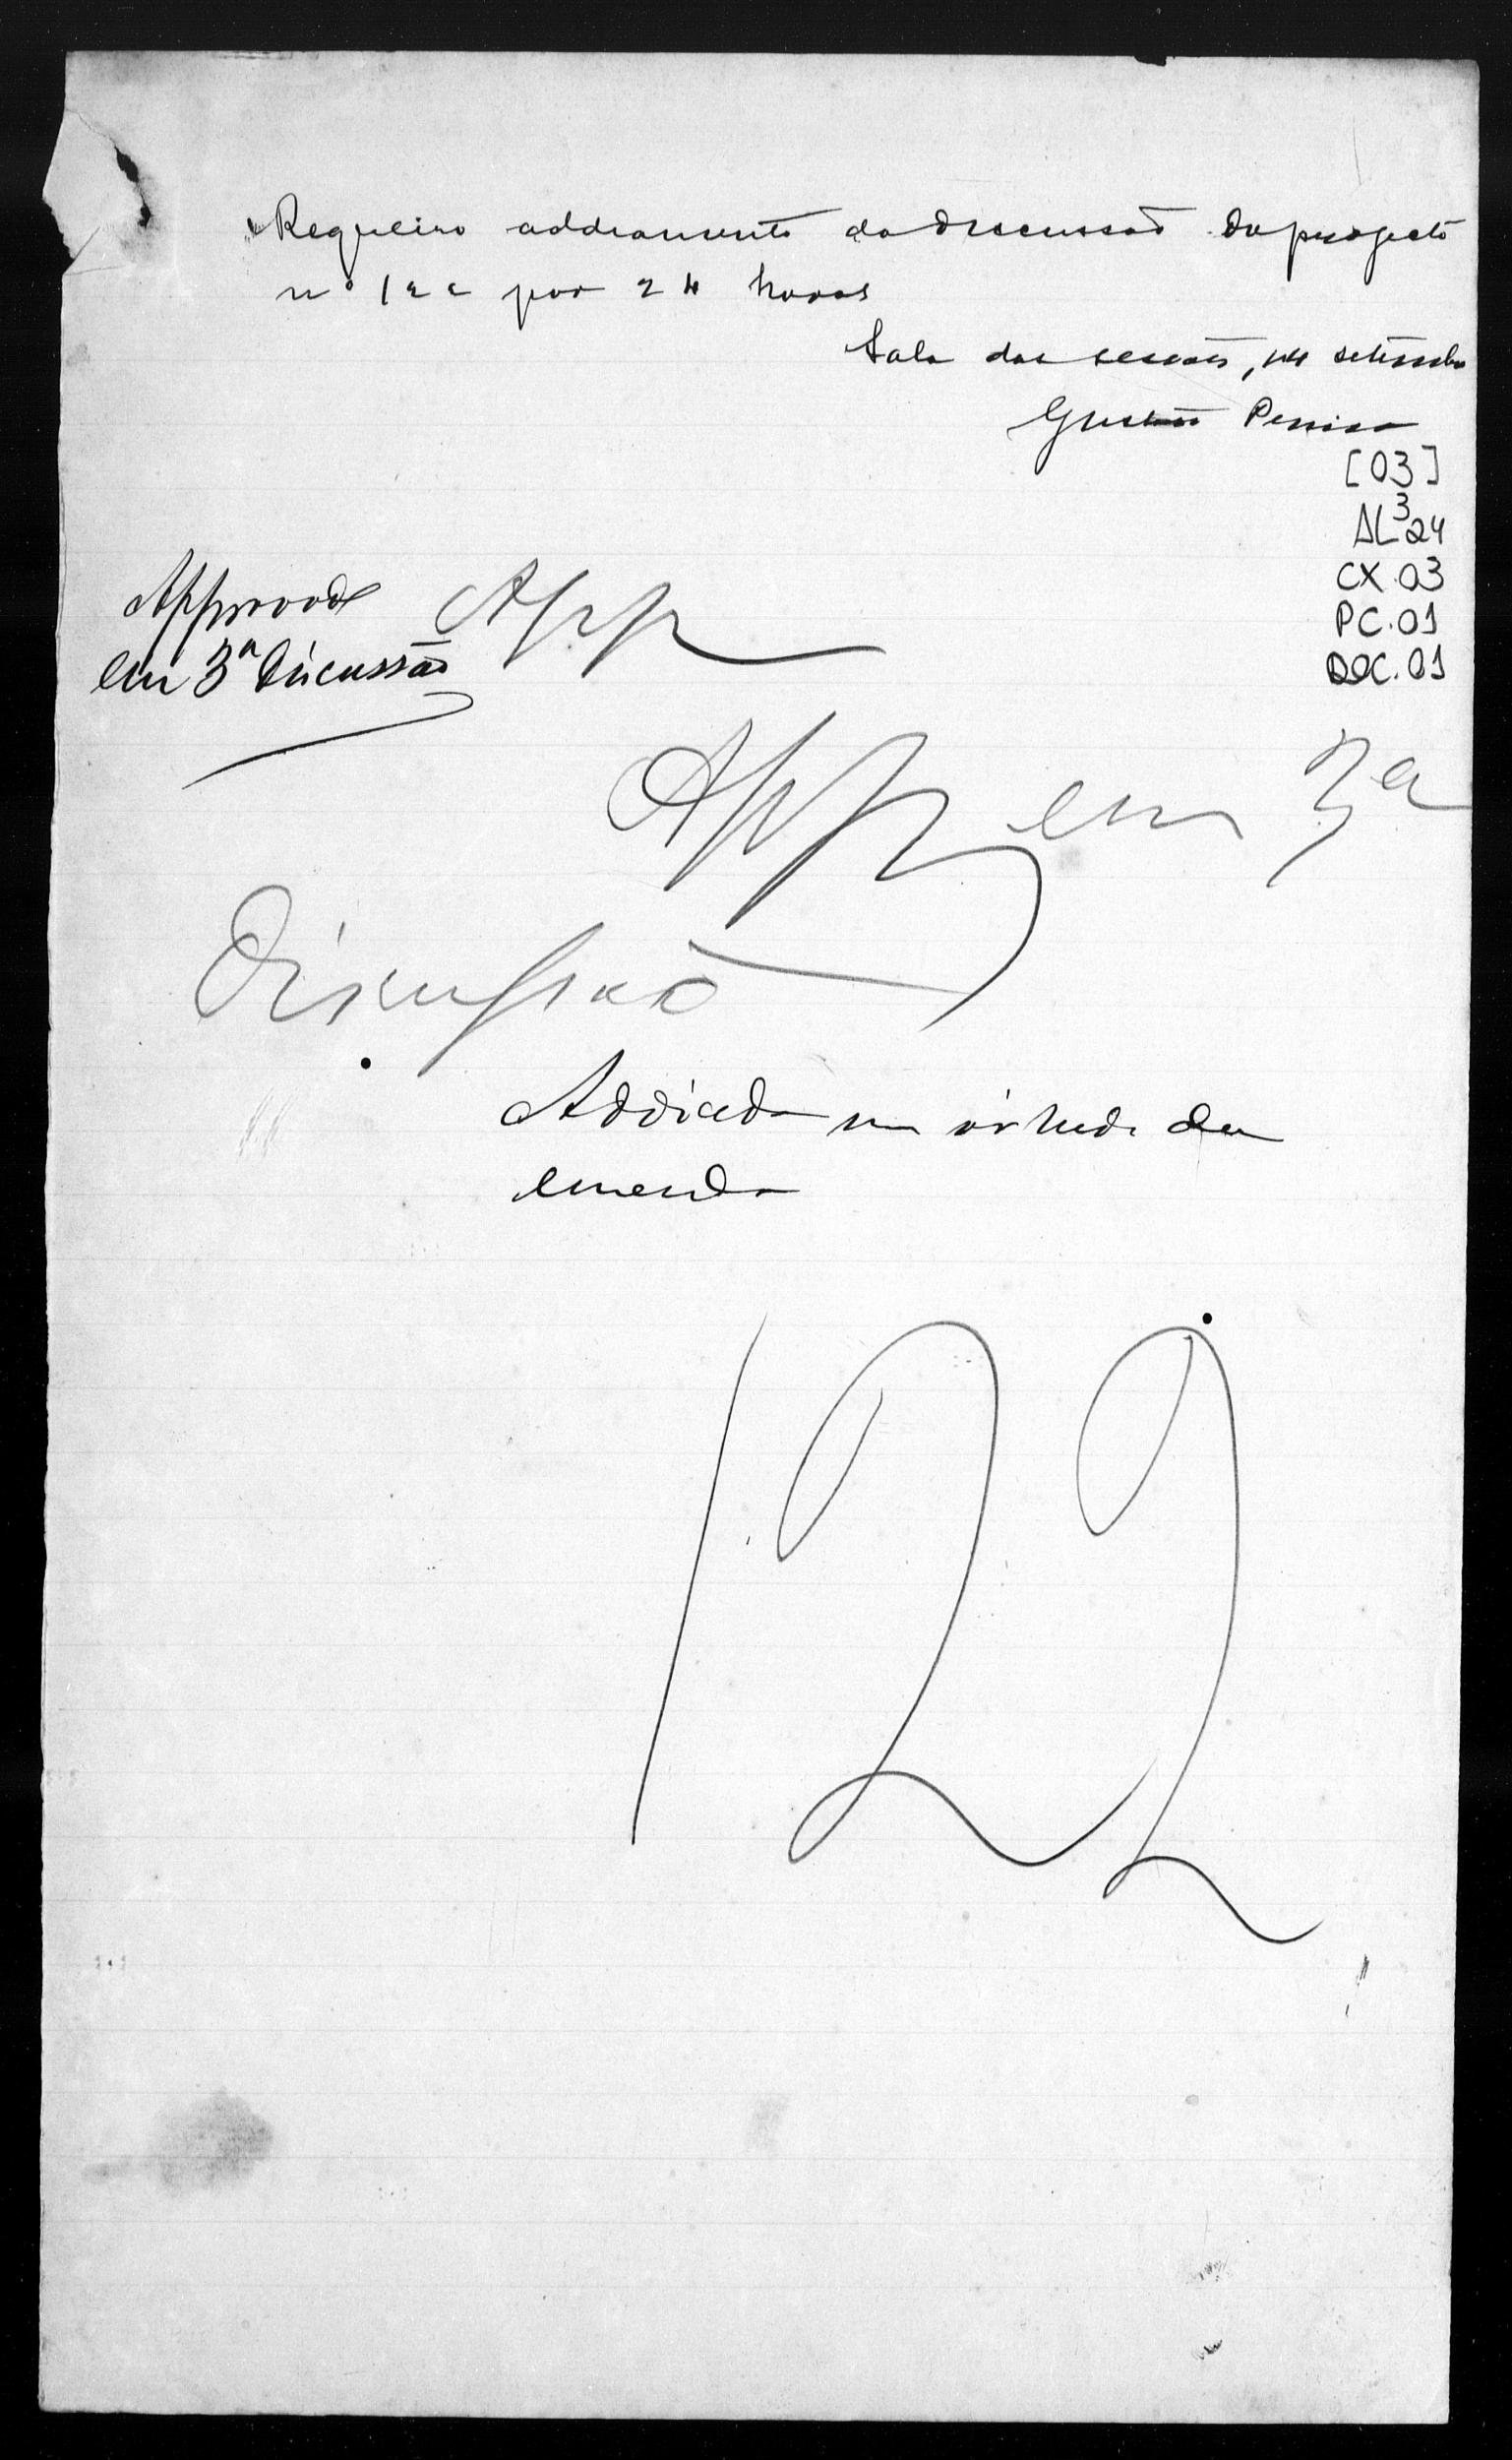 Requeiro addiamento da discussão do projecto
nº 122 por 24 horas
Sala das sessões, 14 setembro
Gustavo Penna
[03]
AL³24
CX.03
PC.01
DOC.01
Approvado App
em 3ª discussão
App em 3ª
Discussão
Addiada em virtude da
emenda
122